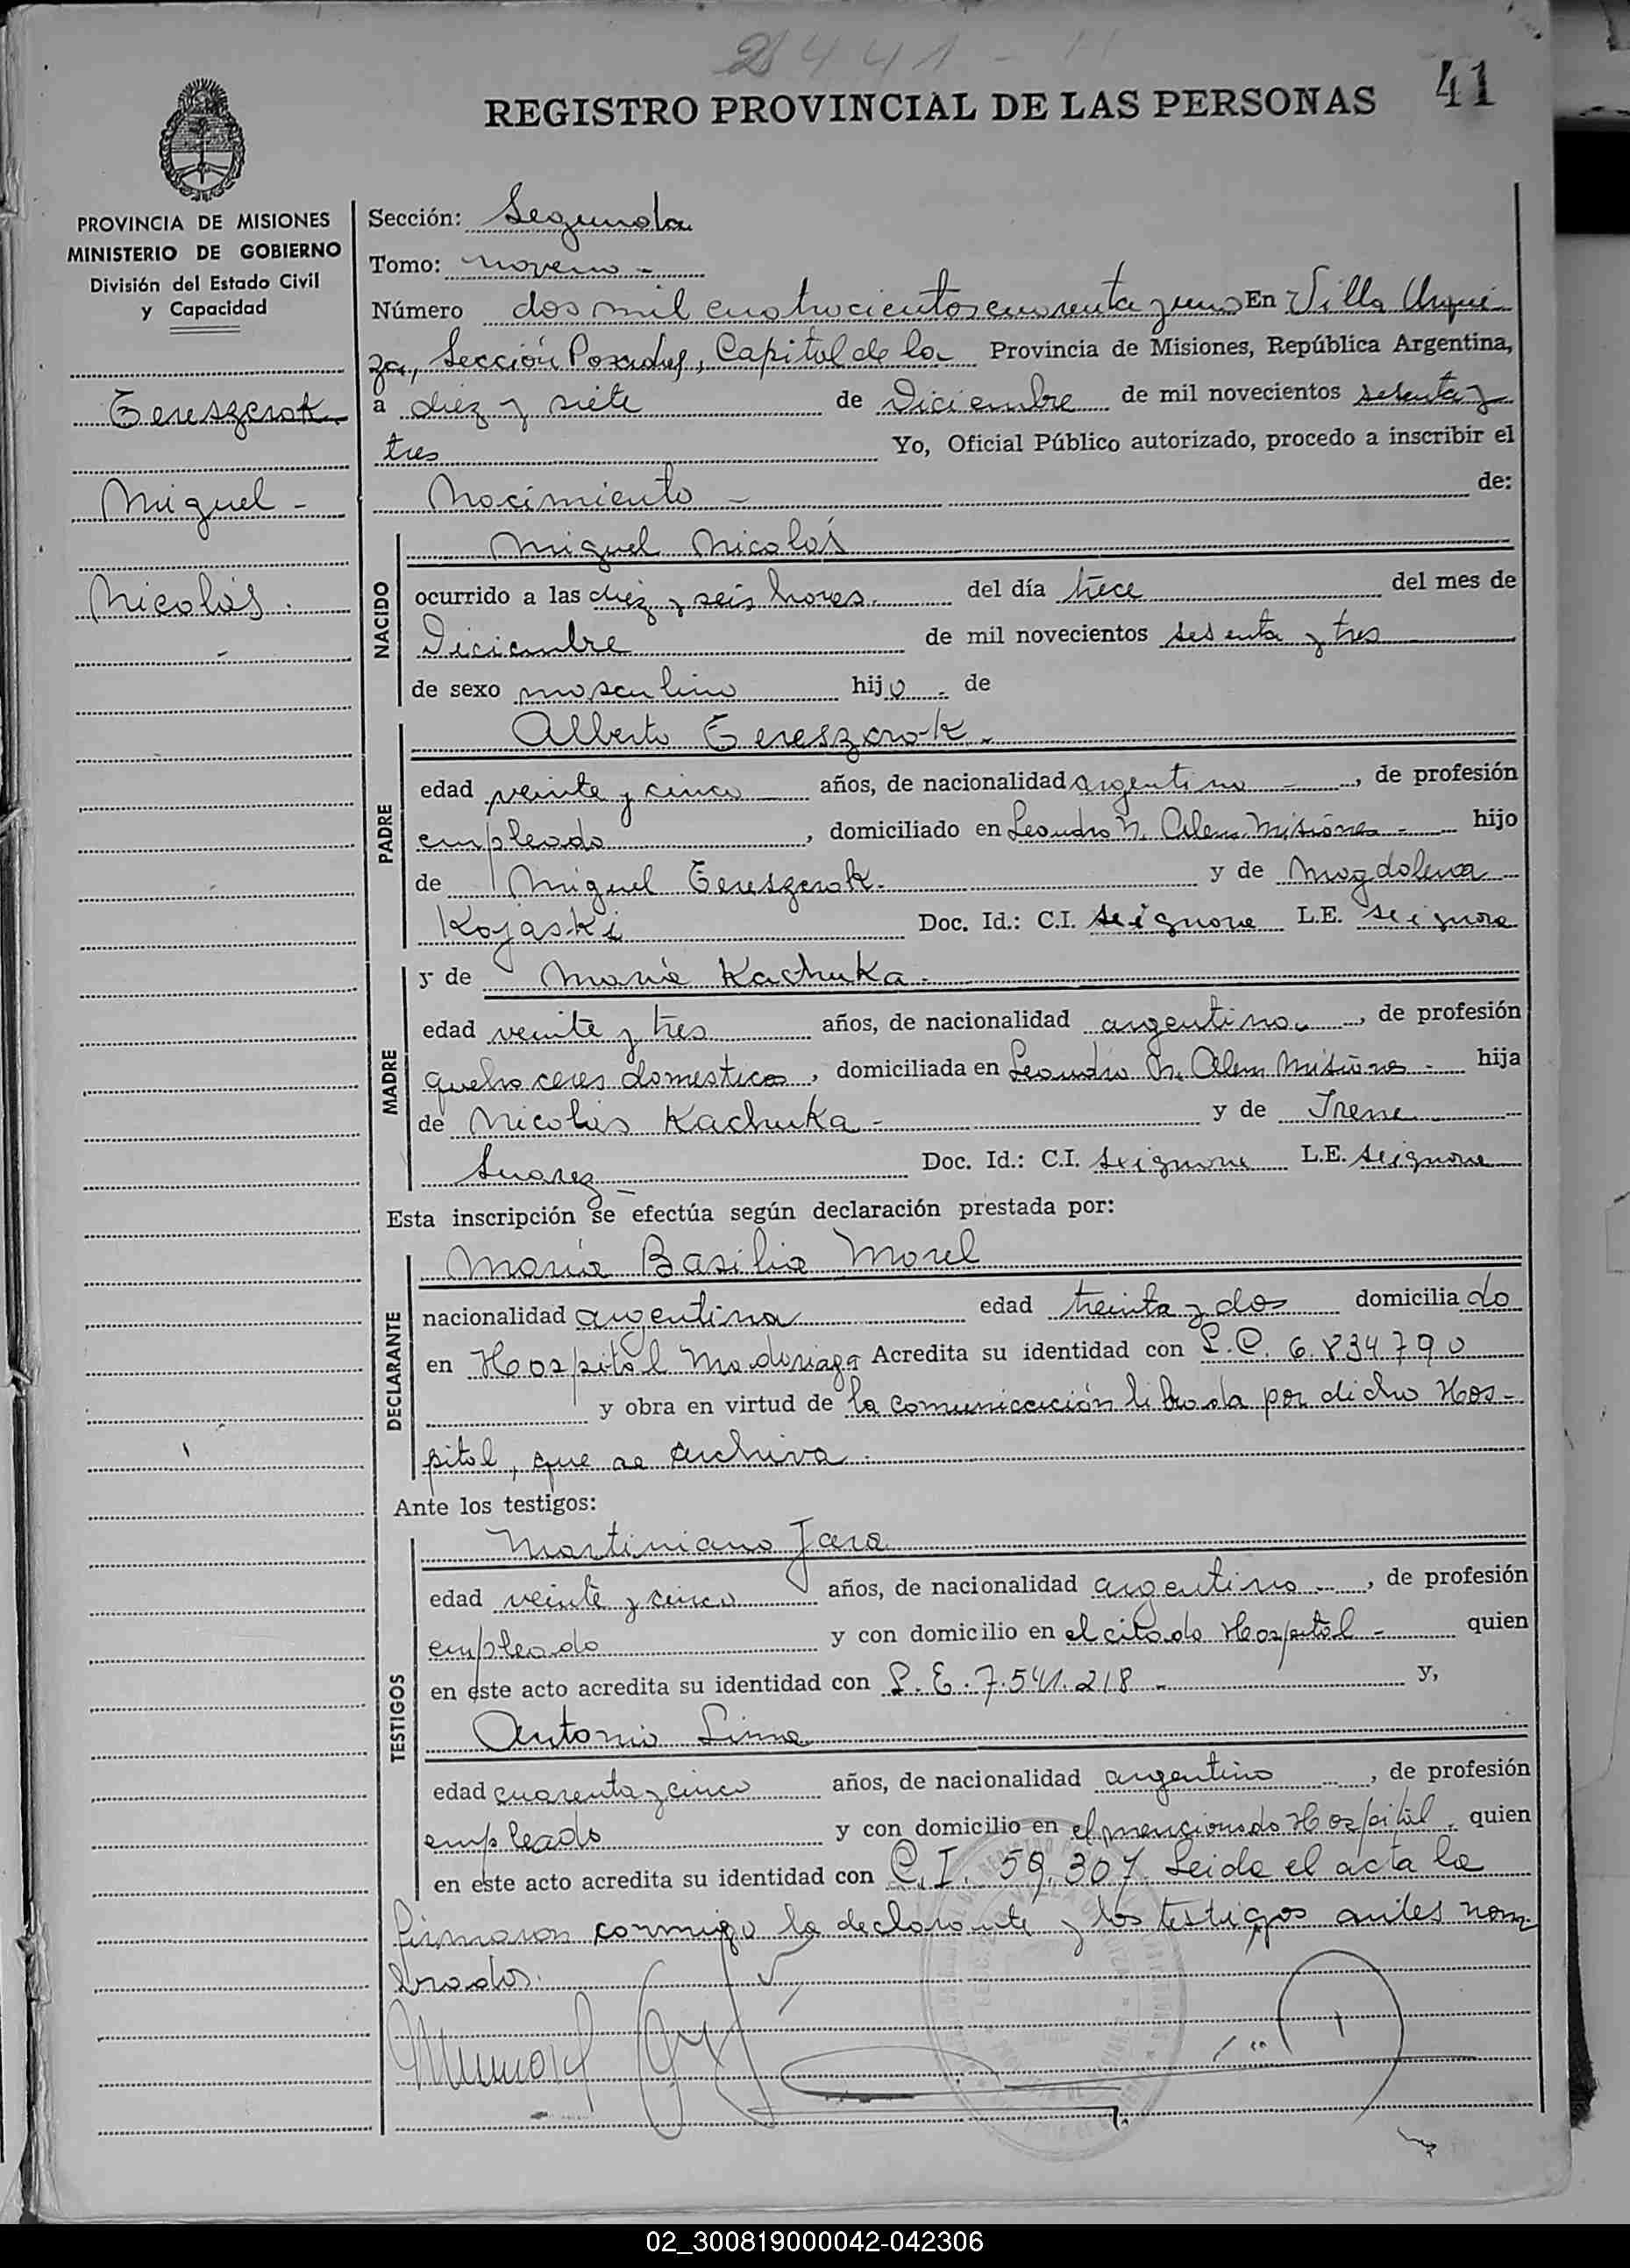 2441
41
REGISTRO PROVINCIAL DE LAS PERSONAS
PROVINCIA DE MISIONES
MINISTERIO DE GOBIERNO
División del Estado Civil
y Capacidad
Tereszczok
Miguel -
Nicolás.
Sección: Segunda
Tomo: noveno -
Número dos mil cuatrocientos cuarenta y uno En Villa Urqui
za, Sección Posadas, Capital de la Provincia de Misiones, República Argentina,
a diez y siete de Diciembre de mil novecientos setenta y
tres Yo, Oficial Público autorizado, procedo a inscribir el
Nacimiento - de:
NACIDO
Miguel Nicolás
ocurrido a las diez y seis horas. del día trece del mes de
Diciembre de mil novecientos setenta y tres
de sexo masculino hijo - de
PADRE
Alberto Tereszczok.
edad veinte y cinco años, de nacionalidad argentino -, de profesión
empleado, domiciliado en Leandro N. Alem Misiones - hijo
de Miguel Tereszczok. y de Magdalena
Kojaski Doc. Id.: C.I. se ignora L.E. se ignora
MADRE
y de María Kachuka -
edad veinte y tres años, de nacionalidad argentina, de profesión
quehaceres domesticos, domiciliada en Leandro N. Alem Misiones - hija
de Nicolás Kachuka - y de Irene
Suarez Doc. Id.: C.I. se ignora L.E. se ignora
Esta inscripción se efectúa según declaración prestada por:
DECLARANTE
María Basilia Morel
nacionalidad argentina edad treinta y dos domiciliado
en Hospital Madariaga Acredita su identidad con L.C. 6.834.790
y obra en virtud de la comunicación librada por dicho Hos-
pital, que se archiva.
Ante los testigos:
TESTIGOS
Martiniano Jara
edad veinte y cinco años, de nacionalidad argentino -, de profesión
empleado y con domicilio en el citado Hospital - quien
en este acto acredita su identidad con L.E. 7.541.218 - y,
Antonio Lima
edad cuarenta y cinco años, de nacionalidad argentino, de profesión
empleado y con domicilio en el mencionado Hospital. quien
en este acto acredita su identidad con C.I. 59.307. Leida el acta la
firmaron conmigo la declarante y los testigos antes nom
brados.
02_300819000042-042306